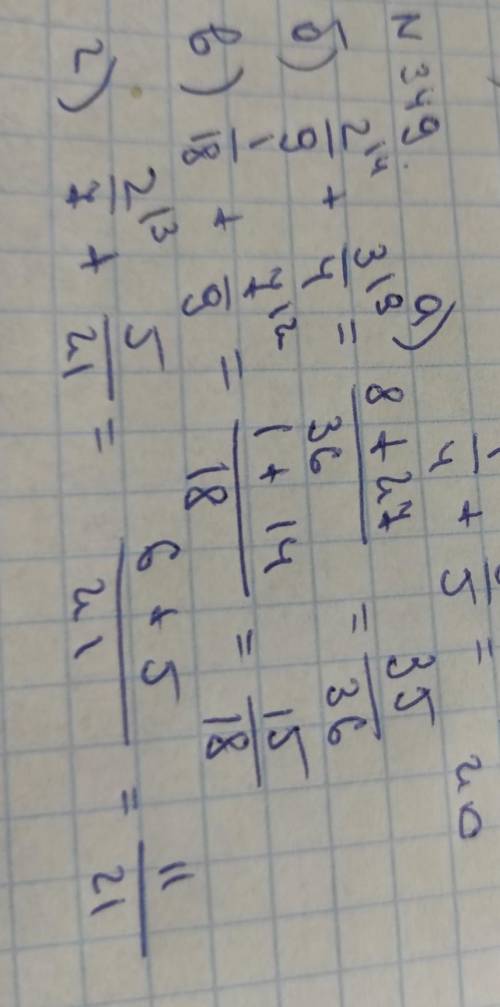 N 349. а) 1/4 + /5 = 20
б) 2|4/9 + 3|9/4 = 8 + 27/36 = 35/36
в) 1/18 + 7|2/9 = 1 + 14/18 = 15/18
г) 2|3/7 + 5/21 = 6 + 5/21 = 11/21